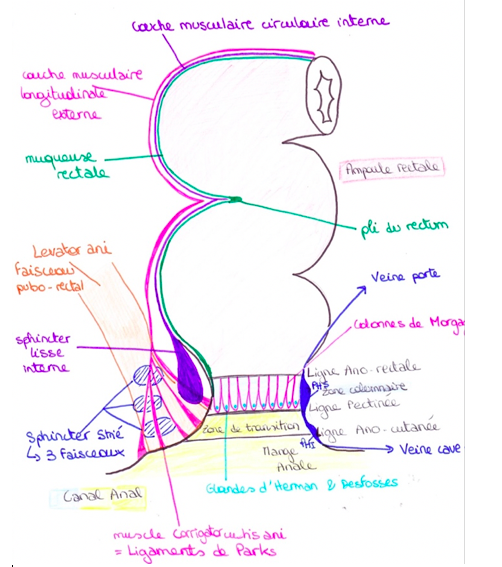 couche musculaire circulaire interne
couche musculaire
longitudinale
externe
muqueuse
rectale
Ampoule rectale
pli du rectum
Levator ani
Faisceau
pubo-rectal
Veine porte
colonnes de Morga
sphincter
lisse
interne
Ligne Ano-rectale
PHS
zone colomnaire
Ligne Pectinée
Sphincter strié
↳ 3 Faisceaux
zone de transition
Ligne Ano-cutanée
PHI
Marge
Anale
Veine cave
Canal Anal
Glandes d'Herman & Desfosses
muscle corrigator cutis ani
= Ligaments de Parks